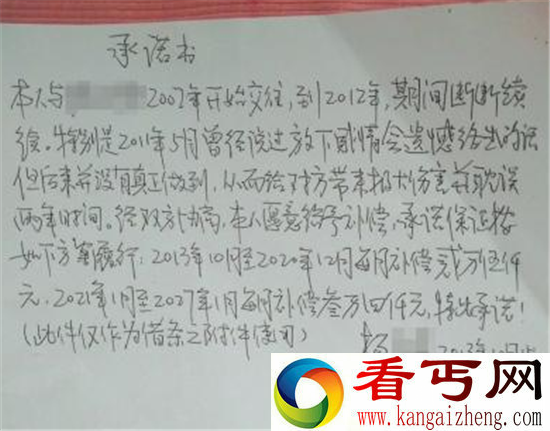 承诺书
本人与 2007年开始交往，到2012年，期间断断续
续。特别是2011年5月曾经说过放下 情会遗憾终 的话
但后来并没有真正做到，从而给对方带来极大伤害并耽误
两年时间。经双方协商，本人愿意给予补偿，承诺保证按
如下方案履行：2013年10月至2020年12月每月补偿贰万伍仟
元，2021年1月至2027年1月每月补偿叁万四仟元，特此承诺！
（此件仅作为借条之附件使用）
2013年10月
看丐网
www.kangaizheng.com